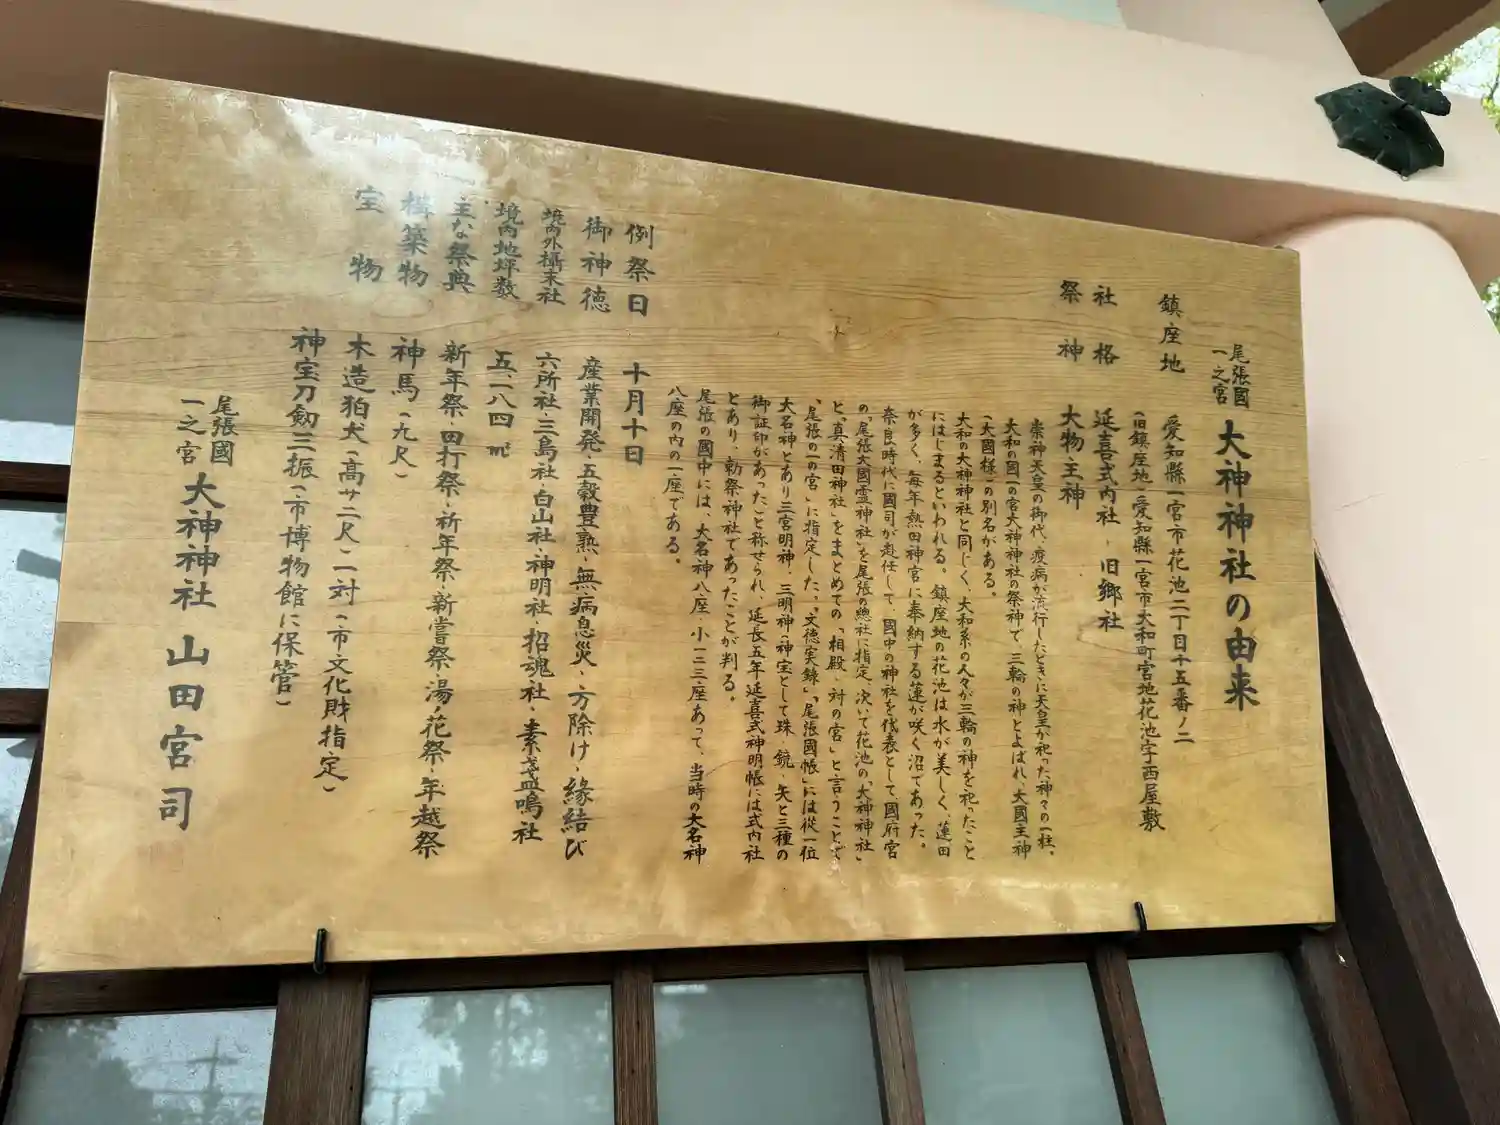 尾張國
一之宮
大神神社の由来
鎮座地 愛知縣一宮市花池二丁目十五番ノ二
(旧鎮座地 愛知縣一宮市大和町宮地花池字西屋敷
社格 延喜式内社 - 旧郷社
祭神 大物主神
崇神天皇の御代、疫病が流行したときに天皇が祀った神々の一柱、
大和の國一の宮大神神社の祭神で、三輪の神とよばれ、大國主神
(大國様)の別名がある。
大和の大神神社と同じく、大和系の人々が三輪の神を祀ったこと
にはじまるといわれる。鎮座地の花池は水が美しく、蓮田
が多く、毎年熱田神宮に奉納する蓮が咲く沼であった。
奈良時代に國司が赴任して、國中の神社を代表として國府宮
の「尾張大國霊神社」を尾張の總社に指定、次いで花池の「大神神社」
と「真清田神社」をまとめての「相殿、対の宮」と言うことで
「尾張の一の宮」に指定した。「文徳実録」「尾張國帳」には従一位
大名神とあり三宮明神、三明神(神宝として珠、鏡、矢と三種の
御証印があった)と称せられ、延長五年延喜式神明帳には式内社
とあり、勅祭神社であったことが判る。
尾張の國中には、大名神八座、小一二三座あって、当時の大名神
八座の内の一座である。
例祭日 十月十日
御神徳 産業開発、五穀豊熟、無病息災、方除け、縁結び
境内外攝末社 六所社、三島社、白山社、神明社、招魂社、素盞嗚社
境内地坪数 五、一八四㎡
主な祭典 新年祭、田打祭、祈年祭、新嘗祭、湯ノ花祭、年越祭
構築物 神馬(九尺)
木造狛犬(高サ二尺)一対(市文化財指定)
宝物 神宝刀劔三振(市博物館に保管)
尾張國
一之宮
大神神社 山田宮司